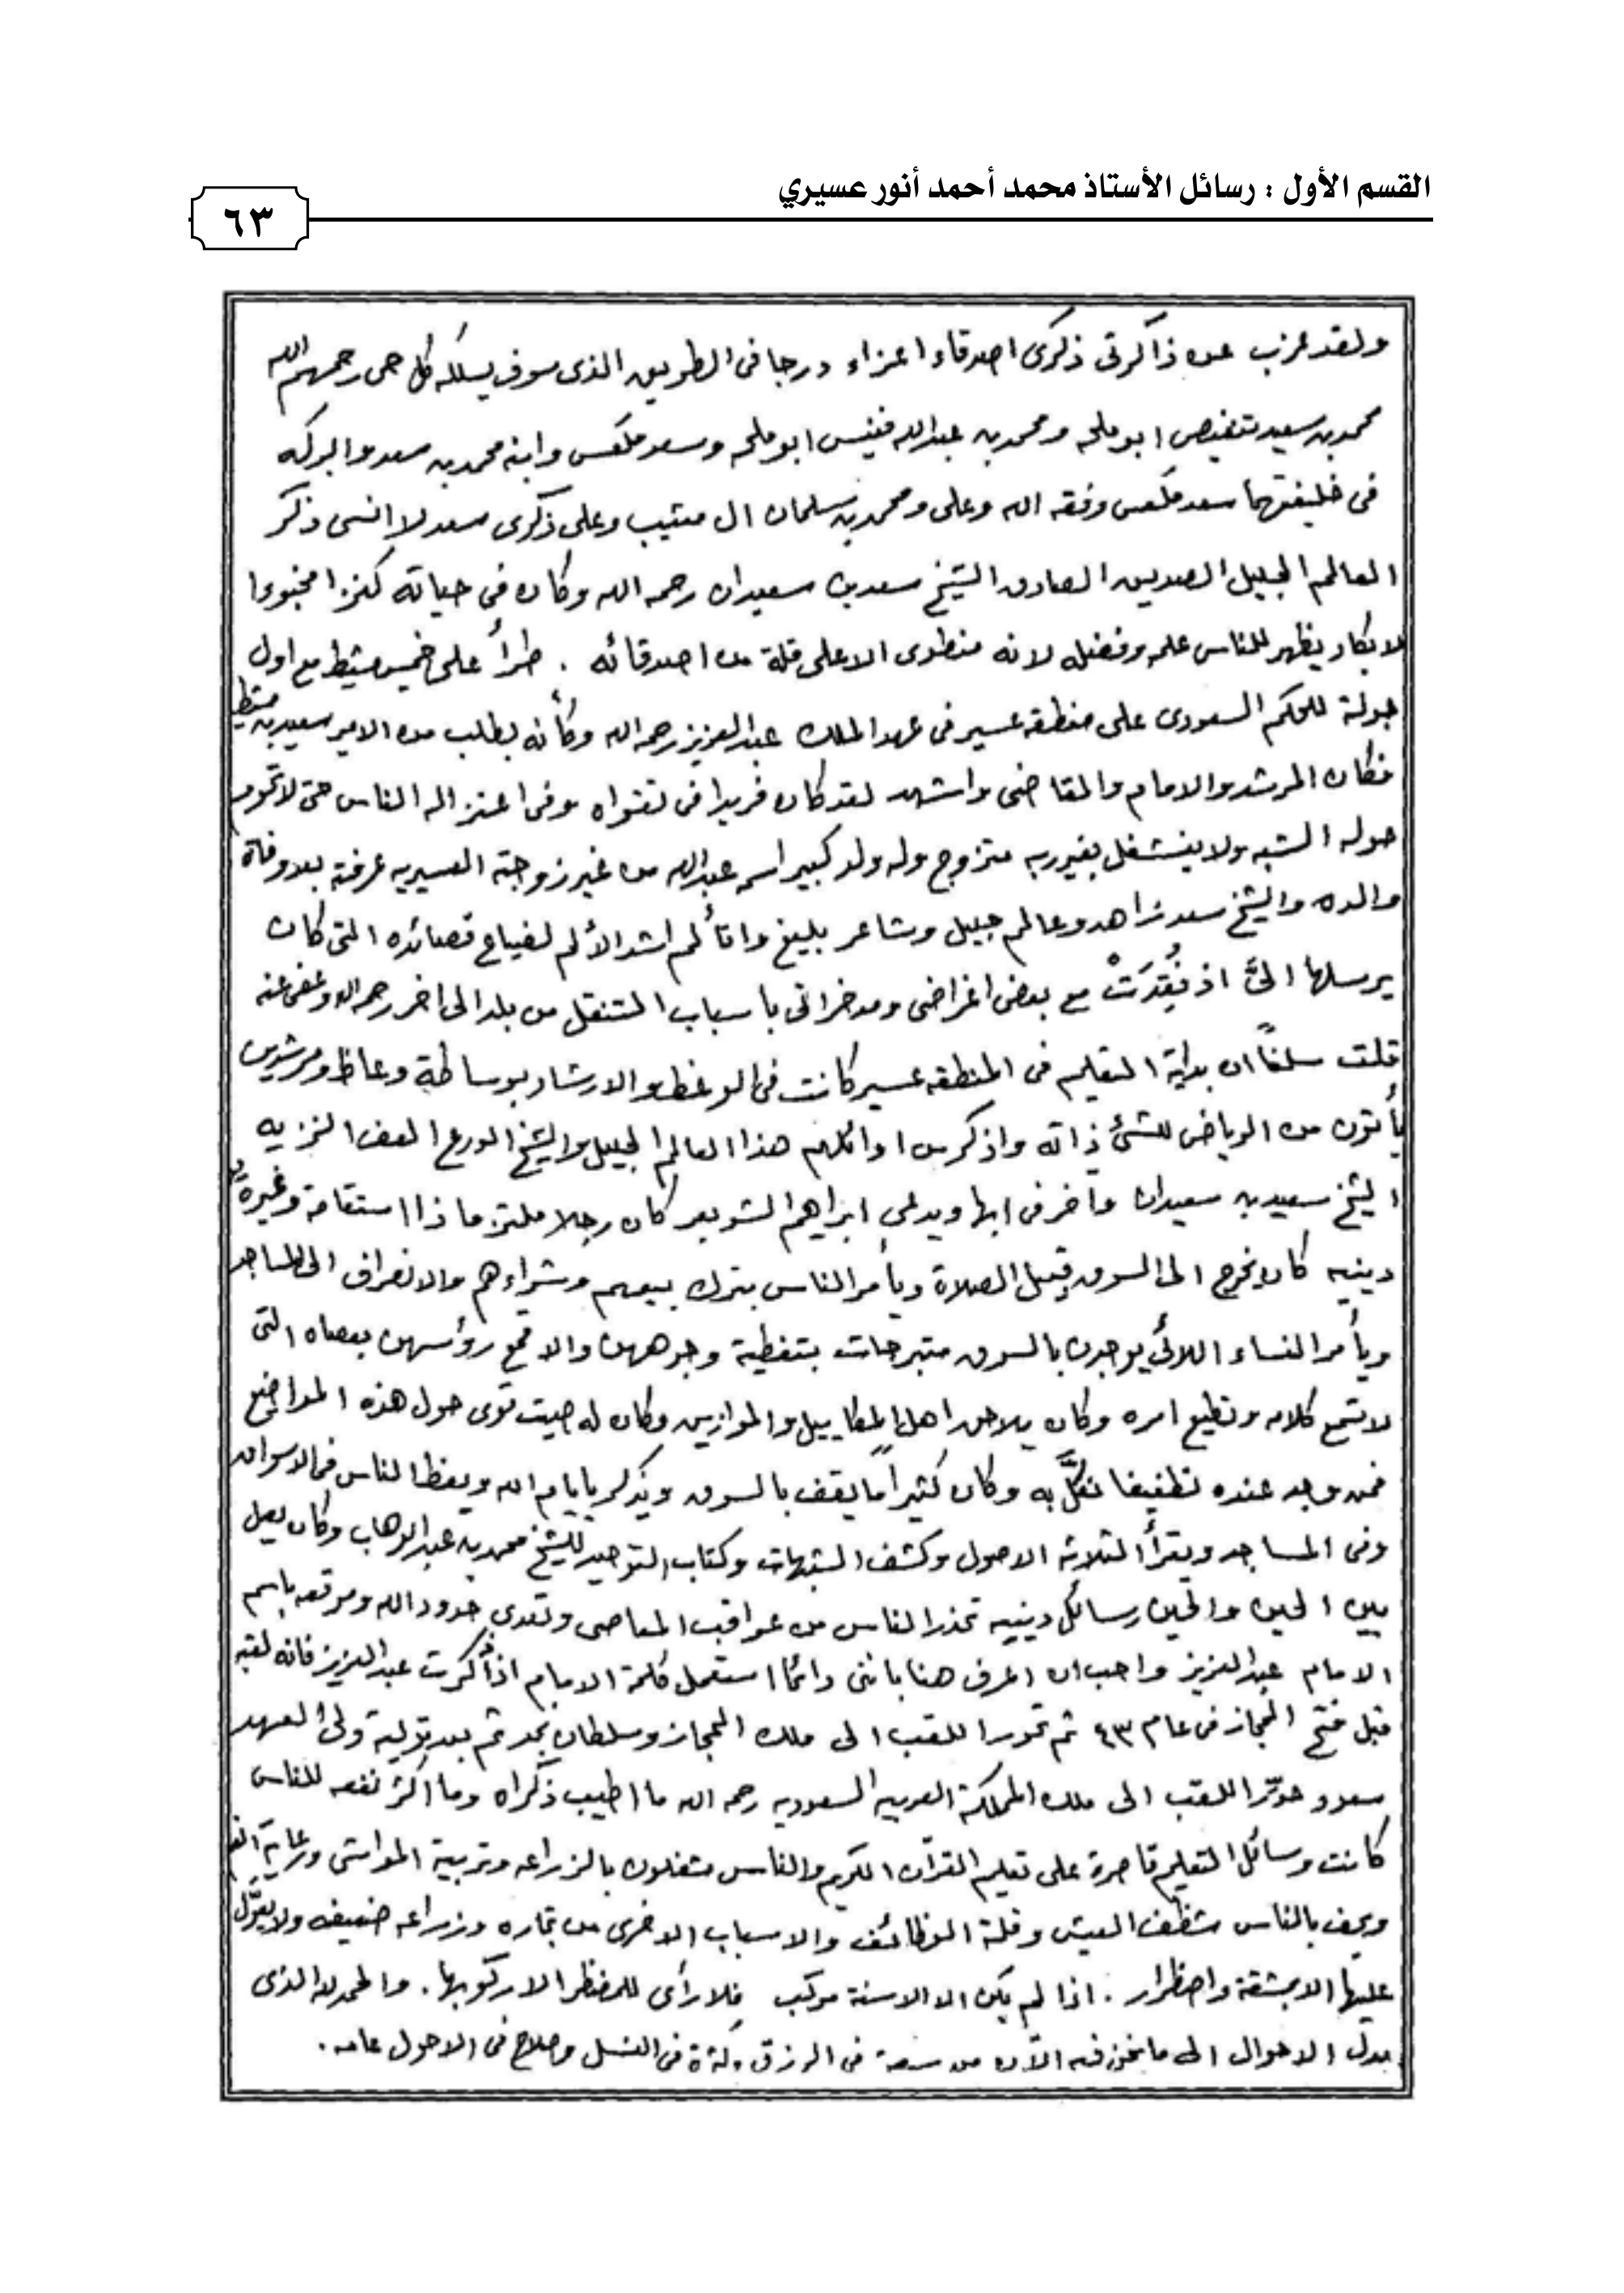 القسم الأول : رسائل الأستاذ محمد أحمد أنور عسيري
٦٣
ولقد عزب عن ذاكرتى ذكرى اصدقاء اعزاء درجا فى الطريق الذى سوف يسلكه كل حى رحمهم الله
محمد بن سعيد ابو ملحه ومحمد بن عبدالله ابو ملحه وسعد وابنه محمد بن سعد والبركه
فى خليفتهما سعد وفقه الله وعلى ومحمد بن سلمان ال متيب وعلى ذكرى سعد لا انسى ذكر
العالم الجليل الصديق الصادق الشيخ سعد بن سعيدان رحمه الله وكان فى حياته كنزا مخبوءا
لا يكاد يظهر للناس علمه وفضله لانه منطوى الا على قلة من اصدقائه . طرأ على خميس مشيط مع اول
جولة للحكم السعودى على منطقة عسير فى عهد الملك عبدالعزيز رحمه الله وكأنه بطلب من الامير سعيد بن مشيط
فكان المرشد والامام والقاضى واشهد لقد كان فريدا فى تقواه وفى اعتزاله الناس حتى لا تحوم
حوله الشبه ولا ينشغل بغير ربه متزوج وله ولد كبير اسمه عبدالله من غير زوجته العسيريه عرفته بعد وفاة
والده والشيخ سعد زاهد وعالم جليل وشاعر بليغ واتألم اشد الألم لضياع قصائده التى كان
يرسلها الىَّ اذ فُقِدَتْ مع بعض اغراضى ومدخراتى باسباب التنقل من بلد الى اخر رحمه الله وعفى عنه
قلت سلفاً ان بداية التعليم فى المنطقه عسير كانت فى الوعظ والارشاد بوساطة وعاظ ومرشدين
يأتون من الرياض للشئ ذاته واذكر من اوائلهم هذا العالم الجليل والشيخ الورع العف النزيه
الشيخ سعيد بن سعيدان وآخر فى ابها ويدعى ابراهيم الشويعر كان رجلا ملتزما ذا استقامة وغيرةٍ
دينيه كان يخرج الى السوق قبيل الصلاة ويأمر الناس بترك بيعهم وشراءهم والانصراف الى المساجد
ويأمر النساء اللائى يوجدن بالسوق متبرجات بتغطية وجوههن والا قمع رؤسهن بعصاه التى
لا تسمع كلامه وتطيع امره وكان يلاحق اهل المكاييل والموازين وكان له صيت قوى حول هذه المواضيع
فمن وجد عنده تطفيفا نكَّل به وكان كثيراً ما يقف بالسوق ويذكر بايام الله ويعظ الناس فى الاسواق
وفى المساجد ويقرأ الثلاثة الاصول وكشف الشبهات وكتاب التوحيد للشيخ محمد بن عبدالوهاب وكان يصل
بين الحين والحين رسائل دينيه تحذر الناس من عواقب المعاصى وتعدى حدود الله وموقعه باسم
الامام عبدالعزيز واحب ان اعرف هنا باننى دائما استعمل كلمة الامام اذا ذكرت عبدالعزيز فانه لقبه
قبل فتح الحجاز فى عام ٤٣ ثم تحور اللقب الى ملك الحجاز وسلطان نجد ثم بعد تولية ولى العهد
سعود حوِّر اللقب الى ملك المملكة العربيه السعوديه رحمه الله ما اطيب ذكراه وما اكثر نفعه للناس
كانت وسائل التعليم قاصرة على تعليم القرآن الكريم والناس متغلون بالزراعه وتربية المواشى ورعاية
ويحف بالناس شظف العيش وقلة الوظائف والاسباب الاخرى من تجاره وزراعه ضعيفه ولا يعوَّل
عليها الا بمشقة واضطرار . اذا لم يكن الا الاسنة مركب فلا رأى للمضطر الا ركوبها . والحمد لله الذى
بدل الاحوال الى ما نحن فيه الآن من سعة فى الرزق وكثرة فى النسل وصلاح فى الاحول عامه .